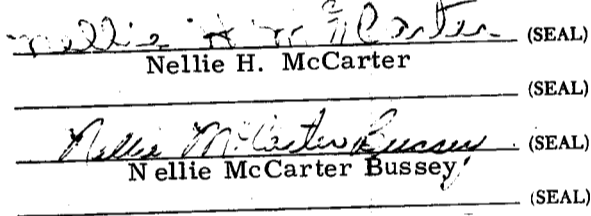 Nellie H McCarter (SEAL)
Nellie H. McCarter
(SEAL)
Nellie McCarter Bussey (SEAL)
Nellie McCarter Bussey
(SEAL)